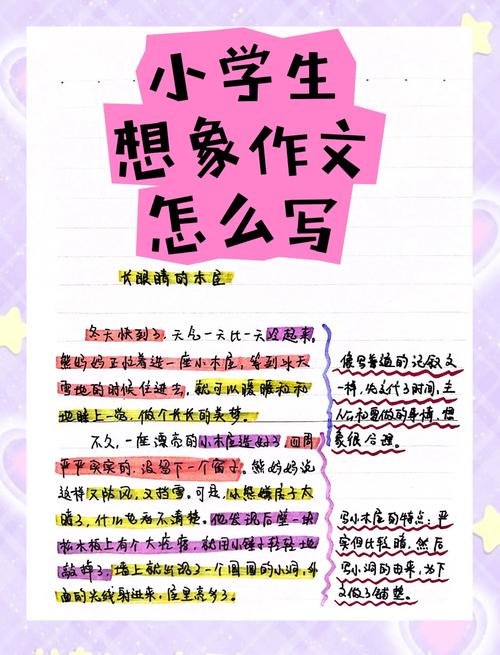 小学生
想象作文
怎么写
长眼睛的木屋
冬天快到了,天气一天比一天冷起来。
熊妈妈正忙着造一座小木屋,等到冰天
雪地的时候住进去,就可以暖暖和和
地睡上一觉,做个长长的美梦。
不久,一座漂亮的小木屋造好了,四周
严严实实的,没留下一个窗子。熊妈妈说
这样又防风,又挡雪。可是,小熊嫌房子太
暗了,什么也看不清楚。他发现后壁一块
松木板上有个大疙瘩,就用小锤子轻轻地
敲掉了,墙上就出现了一个圆圆的小洞,外
面的光线射进来,屋里亮多了。
像写普通的记叙文
一样,先交代了时间,主
人公和要做的事情,想
象很合理。
写小木屋的特点:严
实但比较暗,然后
写小洞的由来,为下
文做了铺垫。